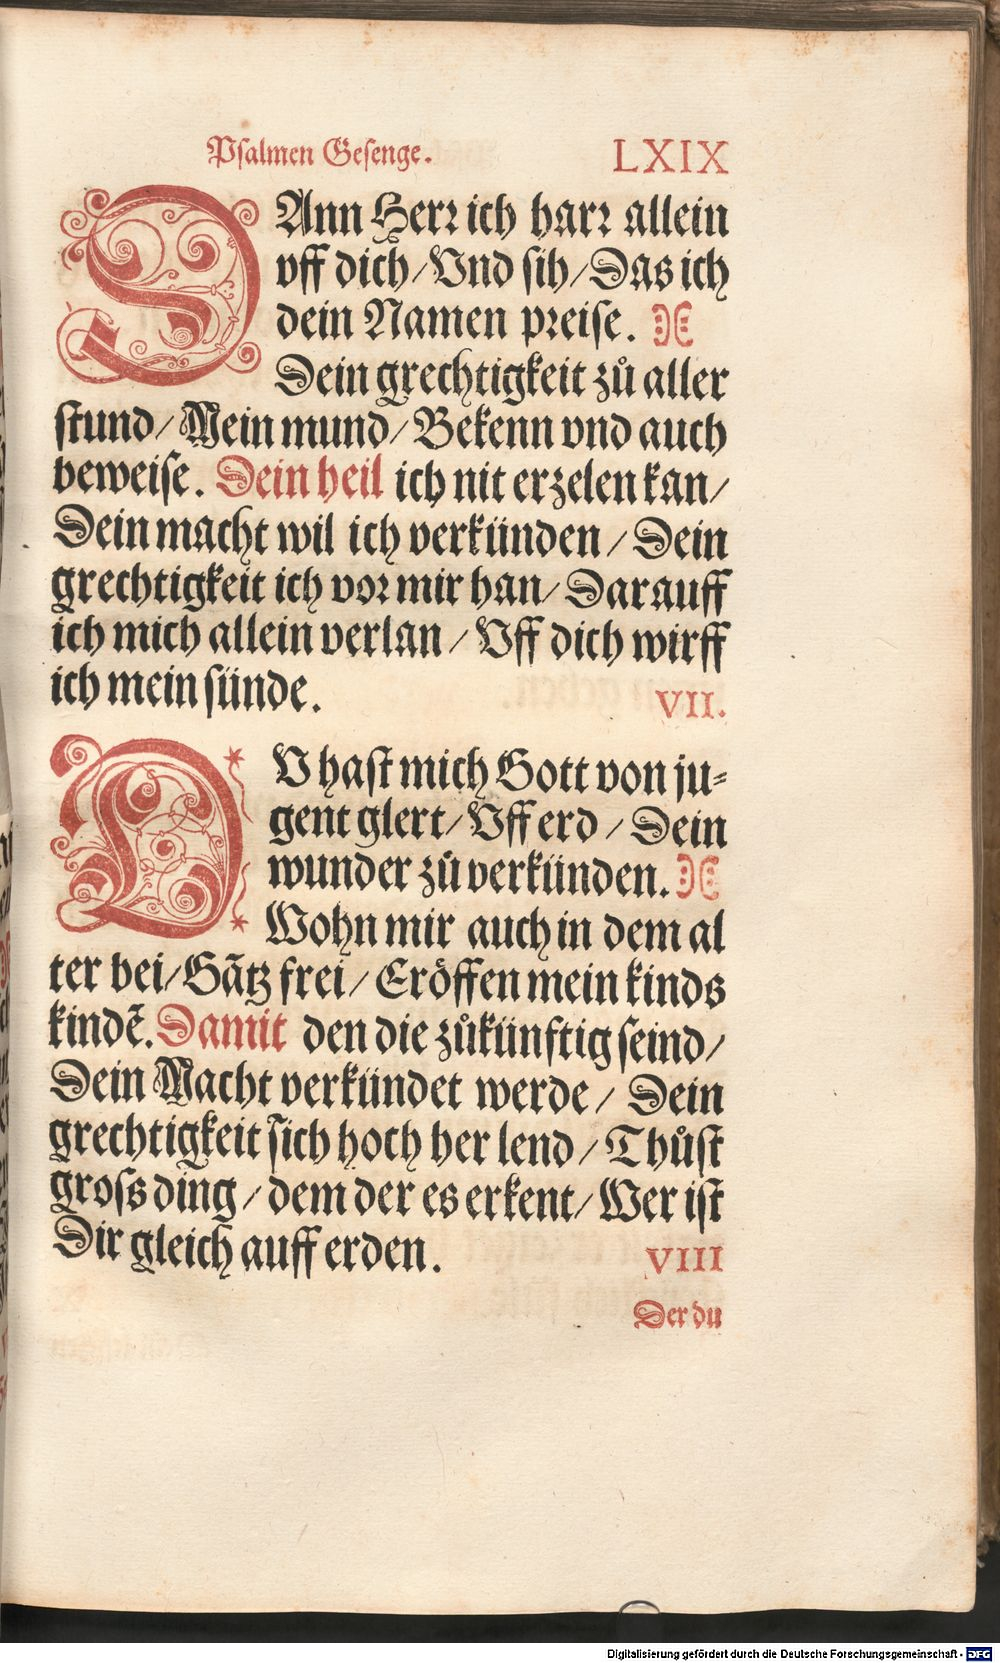 Psalmen Gesenge. LXIX
DAnn Herr ich harr allein
vff dich/Vnd sih/Das ich
dein Namen preise.
Dein grechtigkeit zů aller
stund/Mein mund/Bekenn vnd auch
beweise. Dein heil ich nit erzelen kan/
Dein macht wil ich verkünden/Dein
grechtigkeit ich vor mir han/Darauff
ich mich allein verlan/Vff dich wirff
ich mein sünde. VII.
DV hast mich Gott von ju-
gent glert/Vff erd/Dein
wunder zů verkünden.
Wohn mir auch in dem al
ter bei/Gãtz frei/Eröffen mein kinds
kindẽ. Damit den die zůkünftig seind/
Dein Macht verkündet werde/Dein
grechtigkeit sich hoch her lend/Thůst
gross ding/dem der es erkent/Wer ist
Dir gleich auff erden. VIII
Der du
Digitalisierung gefördert durch die Deutsche Forschungsgemeinschaft - DFG